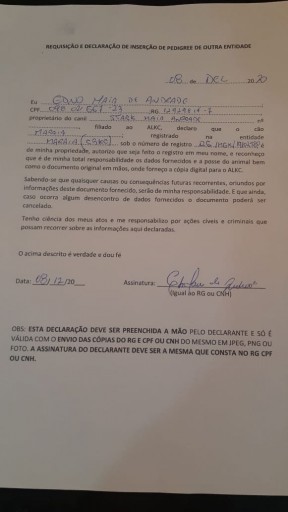 REQUISIÇÃO E DECLARAÇÃO DE INSERÇÃO DE PEDIGREE DE OUTRA ENTIDADE
08 de DEZ 2020
Eu EDNO MAIA DE ANDRADE
CPF RG
proprietário do canil STARK MAIA ANDRADE nº
filiado ao ALKC, declaro que o cão
registrado na entidade
sob o número de registro
de minha propriedade, autorizo que seja feito o registro em meu nome, e reconheço
que é de minha total responsabilidade os dados fornecidos e a posse do animal bem
como o documento original em mãos, onde forneço a cópia digital para o ALKC.
Sabendo-se que quaisquer causas ou consequências futuras recorrentes, oriundos por
informações deste documento fornecido, serão de minha responsabilidade. E que ainda,
caso ocorra algum desencontro de dados fornecidos o documento poderá ser
cancelado.
Tenho ciência dos meus atos e me responsabilizo por ações cíveis e criminais que
possam recorrer sobre as informações aqui declaradas.
O acima descrito é verdade e dou fé
Data: 08/12/20 Assinatura:
(Igual ao RG ou CNH)
OBS: ESTA DECLARAÇÃO DEVE SER PREENCHIDA A MÃO PELO DECLARANTE E SÓ É
VÁLIDA COM O ENVIO DAS CÓPIAS DO RG E CPF OU CNH DO MESMO EM JPEG, PNG OU
FOTO. A ASSINATURA DO DECLARANTE DEVE SER A MESMA QUE CONSTA NO RG CPF
OU CNH.